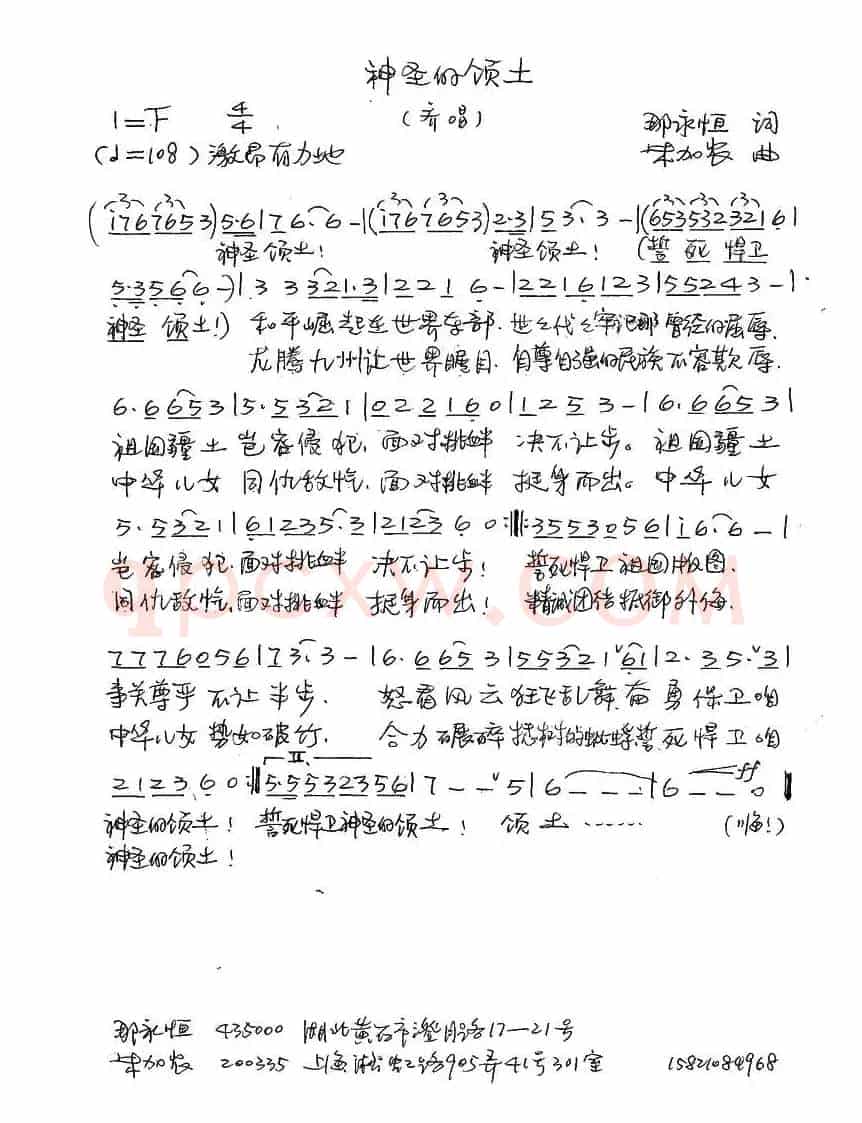 神圣的领土
1=F 4/4 (齐唱) 邵永恒 词
(♩=108) 激昂有力地 朱加农 曲
(i767653)5·6|76·6-|(i767653)2·3|53·3-|(6535323216|
神圣领土! 神圣领土! (誓死悍卫
5·3566-)|3 3321·3|2216-|2216123|55243-|
神圣领土!) 和平崛起在世界东部.世々代々牢记那曾经的屈辱.
龙腾九州让世界瞩目.自尊自强的民族不容欺辱.
6·6653|5·5321|022160|1253-|6·6653|
祖国疆土岂容侵犯,面对挑衅决不让步。祖国疆土
中华儿女同仇敌忾,面对挑衅挺身而出。中华儿女
5·5321|61235·3|212360:‖:35530561|i6·6-|
岂容侵犯.面对挑衅决不让步! 誓死悍卫祖国版图.
同仇敌忾,面对挑衅挺身而出! 精诚团结抵御外侮.
77760561|73·3-|6·6653|55321ˇ61|2·35·ˇ3|
事关尊严不让半步. 怒看风云狂飞乱舞奋勇保卫咱
中华儿女势如破竹. 合力碾碎撼树的蚍蜉誓死悍卫咱
II.
212360:‖5·5532356|7--ˇ5|6---|6--0‖
ff
神圣的领土! 誓死悍卫神圣的领土! 领土…… (嗨!)
神圣的领土!
qpcxw.com
邵永恒 435000 湖北黄石市澄月路17-21号
朱加农 200335 上海淞虹路905弄41号301室 15821084968